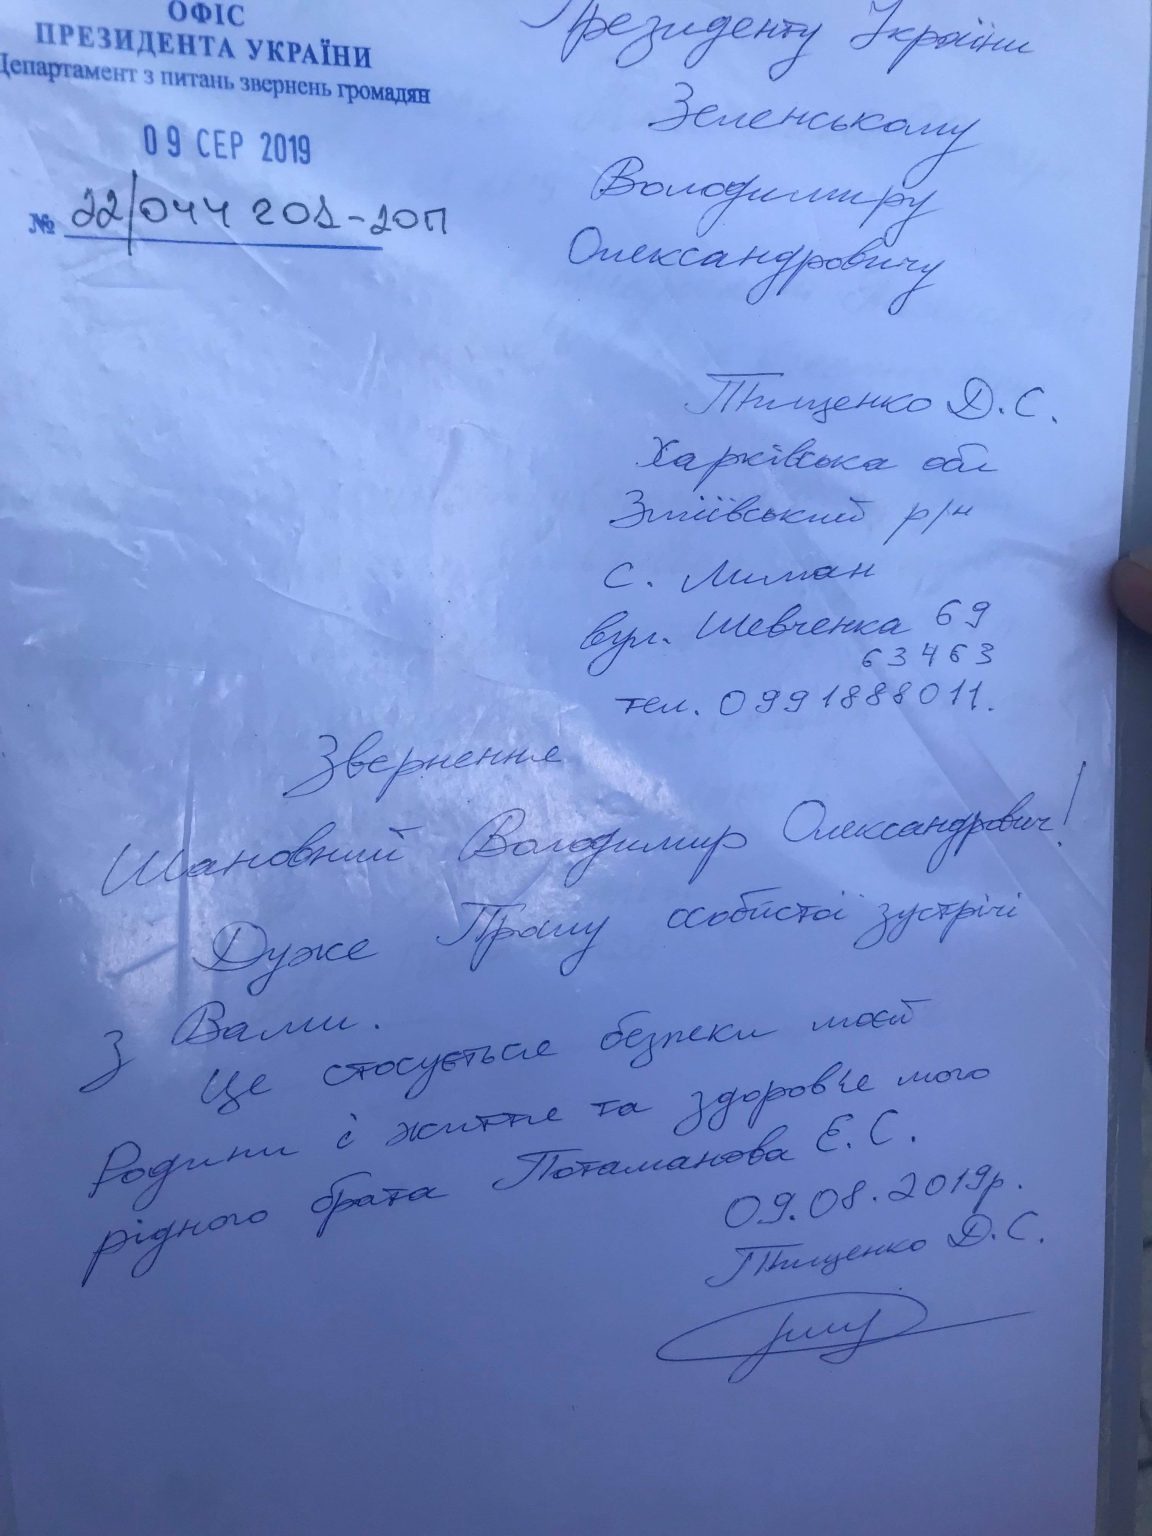 ОФІС
ПРЕЗИДЕНТА УКРАЇНИ
Департамент з питань звернень громадян
09 СЕР 2019
№ 22/044201-20П
Президенту України
Зеленському
Володимиру
Олександровичу
Пищенко Д.С.
Харківська обл
Зміївський р/н
с. Лиман
вул. Шевченка 69
63463
тел. 0991888011.
Звернення
Шановний Володимир Олександрович!
Дуже Прошу особистої зустрічі
з Вами.
Це стосується безпеки моєї
Родини і життя та здоров'я мого
рідного брата Потаманова Є.С.
09.08.2019р.
Пищенко Д.С.